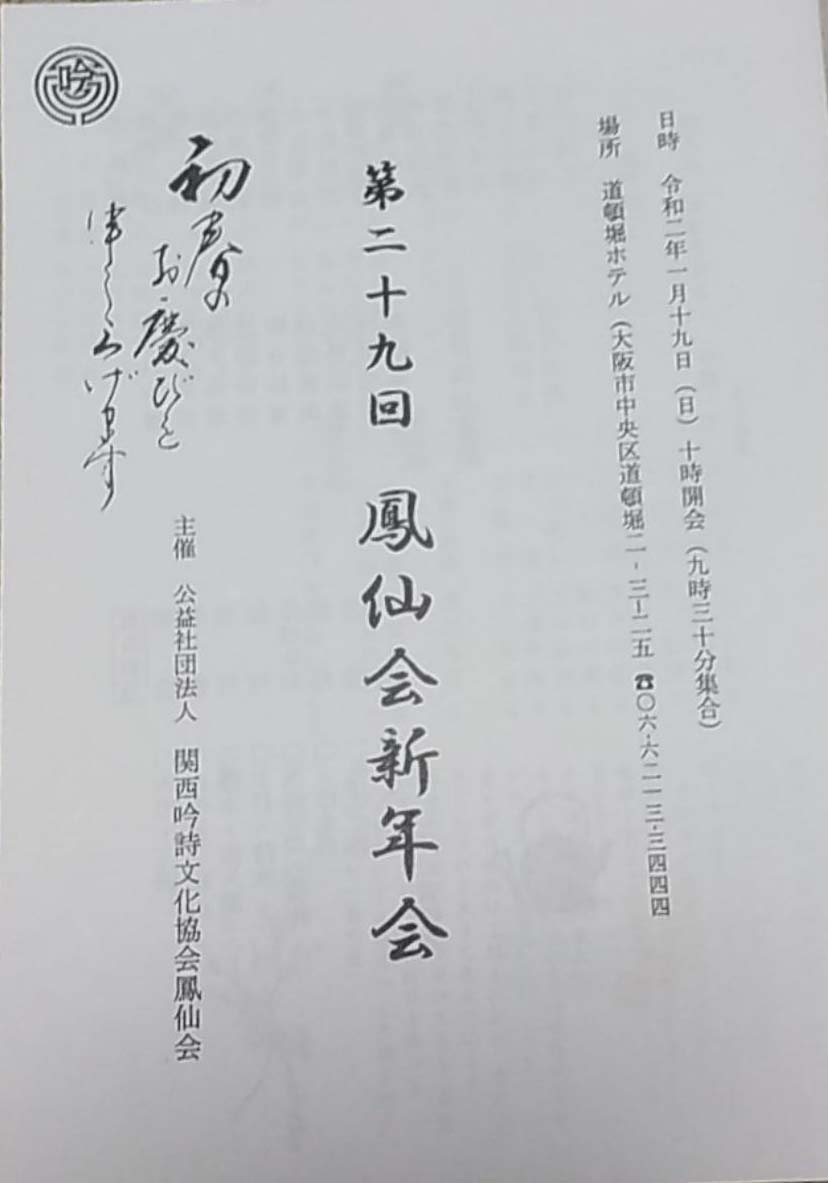 日時　令和二年一月十九日（日）十時開会（九時三十分集合）
場所　道頓堀ホテル（大阪市中央区道頓堀二-三-二五　☎〇六-六二一三-三四四四
第二十九回　鳳仙会新年会
初春の
お慶びを
申し上げます
主催　公益社団法人　関西吟詩文化協会鳳仙会
吟